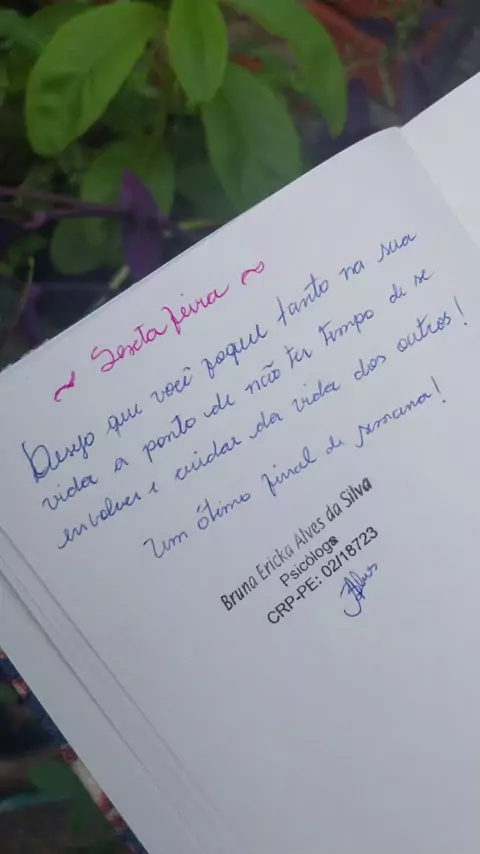 ~ Sexta feira ~
Desejo que você foque tanto na sua
vida a ponto de não ter tempo de se
envolver e cuidar da vida dos outros!
Um ótimo final de semana!
Bruna Ericka Alves da Silva
Psicóloga
CRP-PE: 02/18723